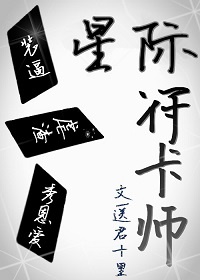 星际符卡师
装逼
虐渣
秀恩爱
文/送君十里